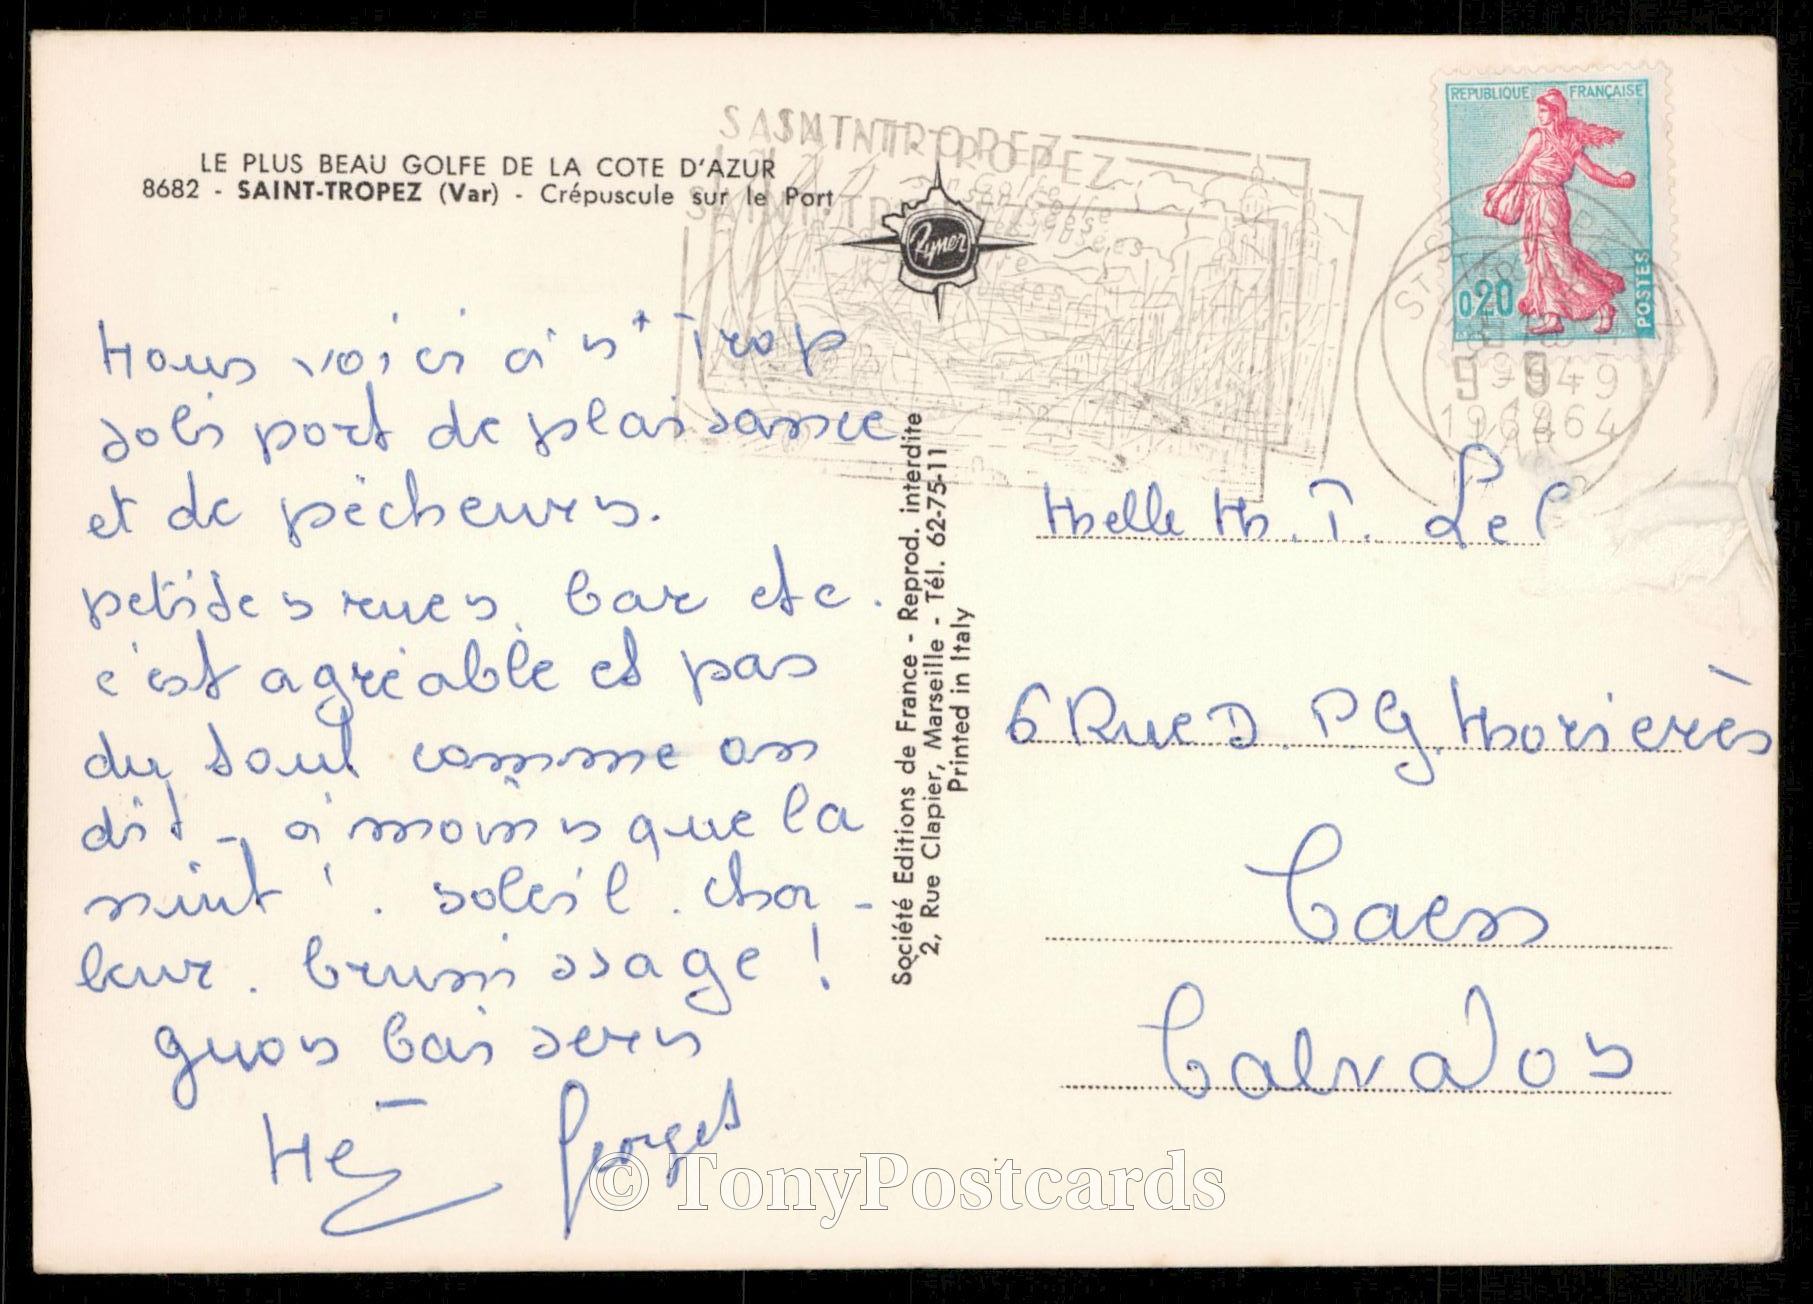 LE PLUS BEAU GOLFE DE LA COTE D'AZUR
8682 - SAINT-TROPEZ (Var) - Crépuscule sur le Port
SAINT-TROPEZ
Rymer
REPUBLIQUE FRANÇAISE
0,20
POSTES
Nous voici à St Trop
joli port de plaisance
et de pêcheurs.
petites rues, bar etc.
c'est agréable et pas
du tout comme on
dit - à moins que la
nuit ! . soleil . cha-
leur . brunissage !
gros baisers
Hé Georget
Société Editions de France - Reprod. interdite
2, Rue Clapier, Marseille - Tél. 62-75-11
Printed in Italy
Melle M. T. Lel
6 Rue D. P. G. Morierès
Caen
Calvados
© TonyPostcards